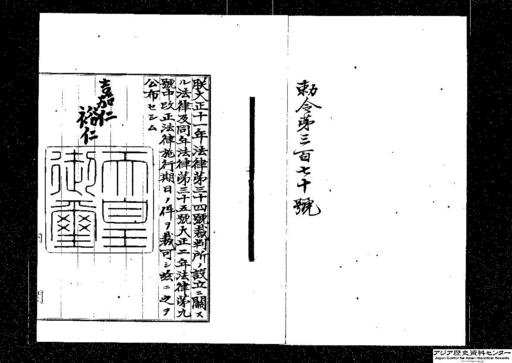 勅令第三百七十號
朕大正十一年法律第三十四號裁判所ノ設立ニ關ス
ル法律及同年法律第三十五號大正二年法律第九
號中改正法律施行期日ノ件ヲ裁可シ茲ニ之ヲ
公布セシム
嘉仁
裕仁
天皇
御璽
アジア歴史資料センター
Japan Center for Asian Historical Records